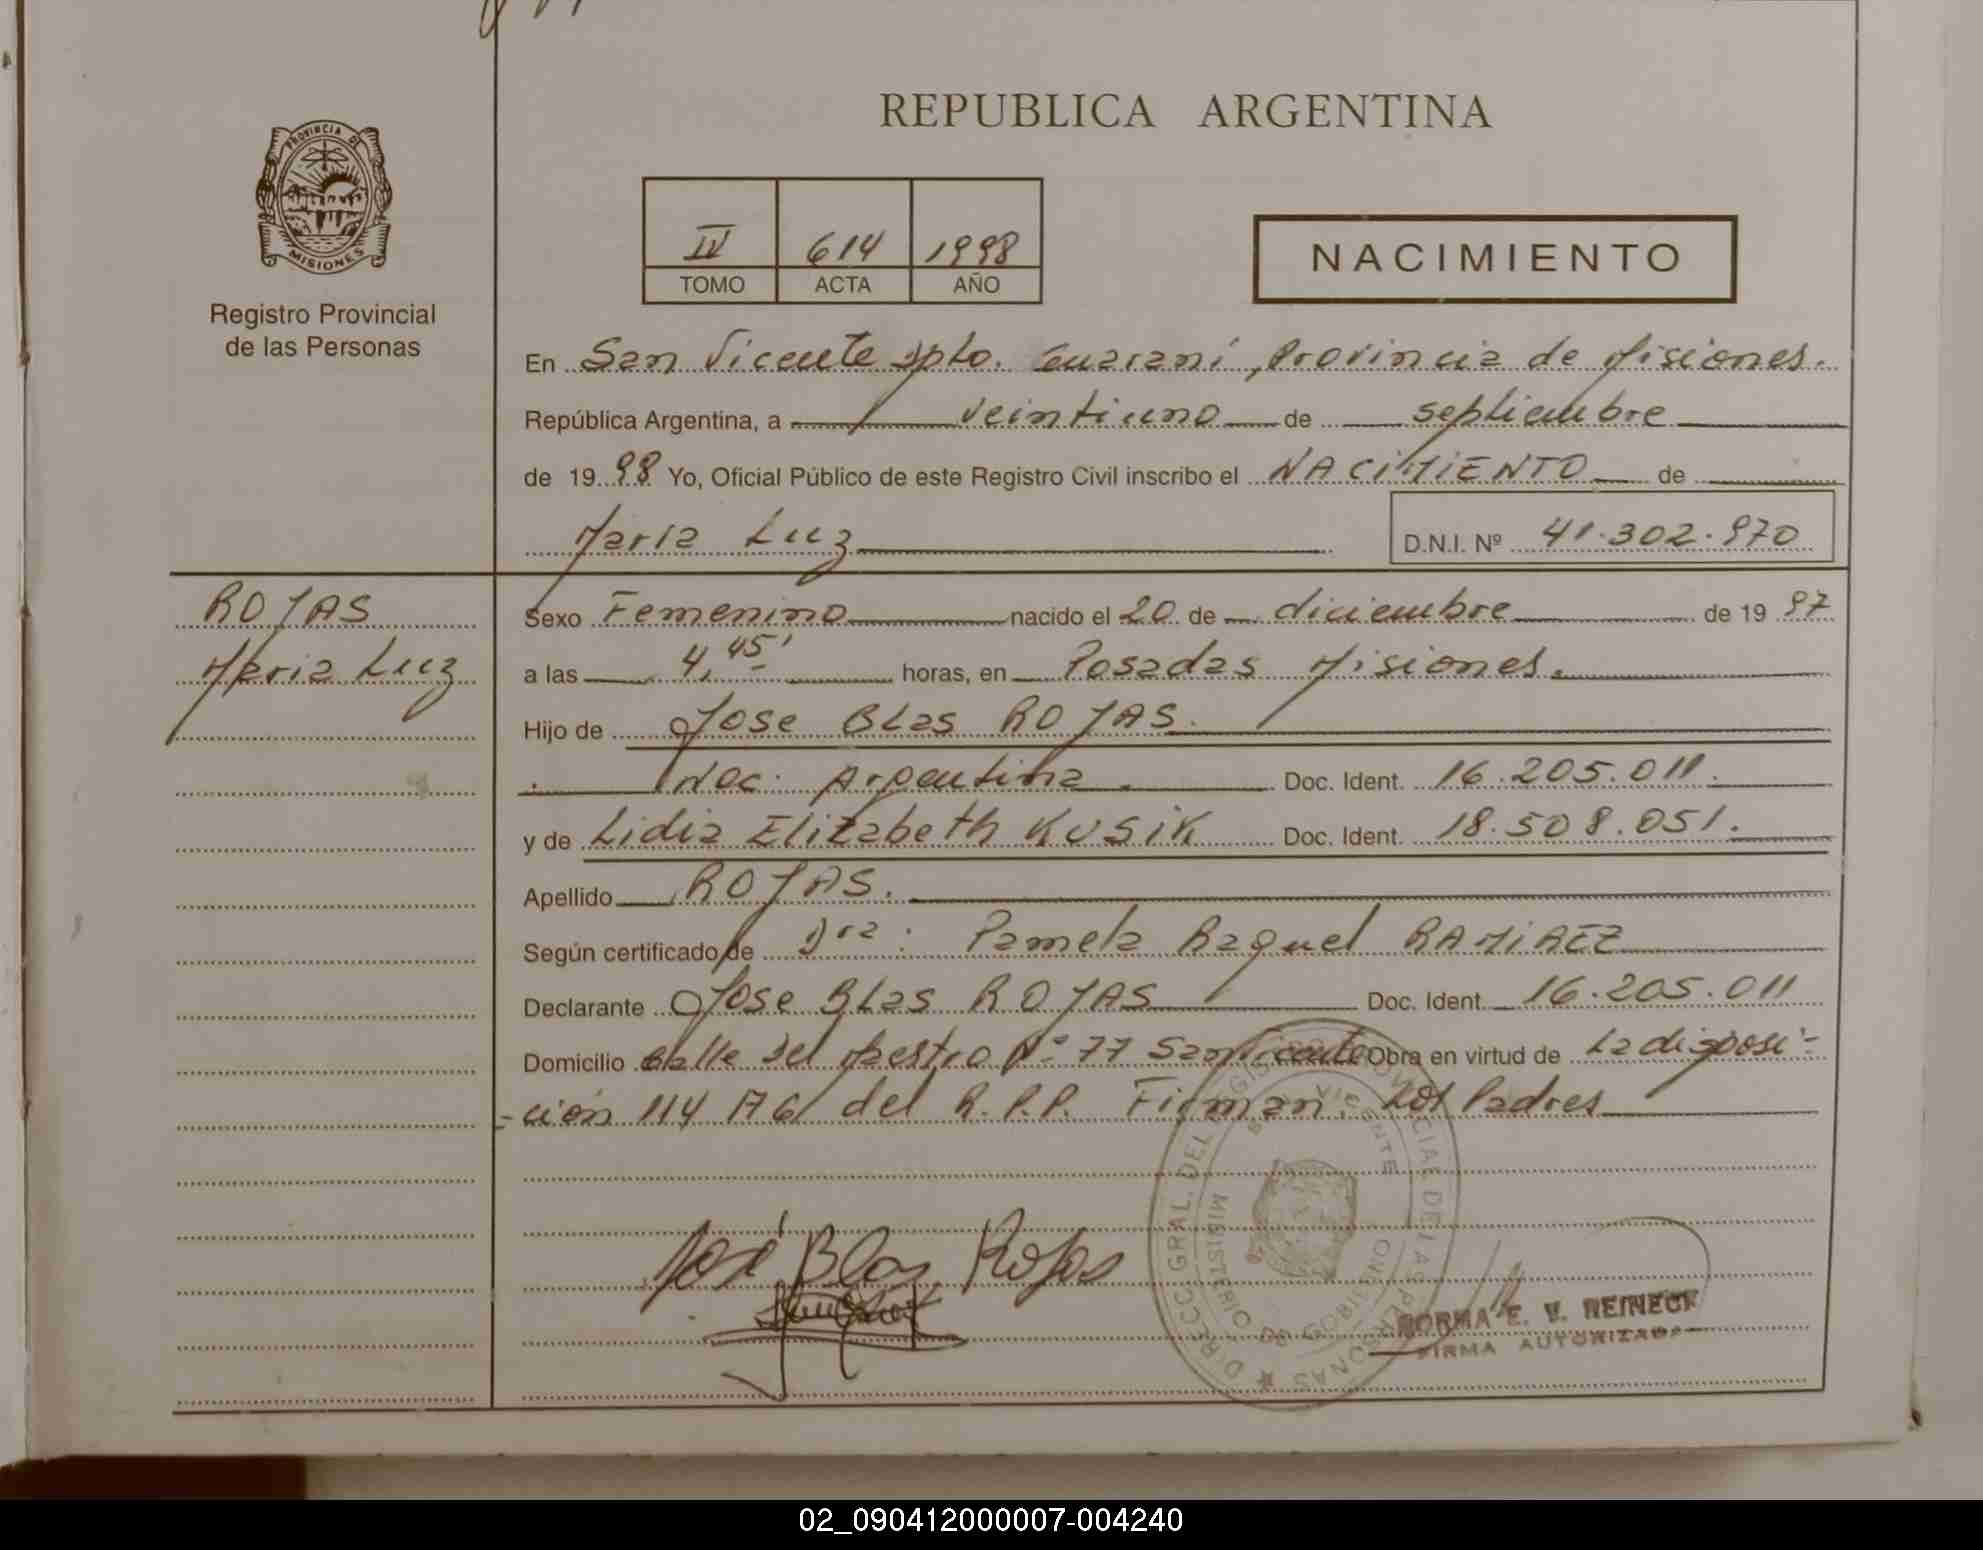 REPUBLICA ARGENTINA
PROVINCIA DE
MISIONES
Registro Provincial
de las Personas
IV 614 1998
TOMO ACTA AÑO
NACIMIENTO
En San Vicente Dpto. Guaraní, Provincia de Misiones.
República Argentina, a veintiuno de septiembre
de 1998 Yo, Oficial Público de este Registro Civil inscribo el NACIMIENTO de
Maria Luz
D.N.I. Nº 41.302.970
ROJAS
Maria Luz
Sexo Femenino nacido el 20 de diciembre de 1997
a las 4,45' horas, en Posadas Misiones.
Hijo de Jose Blas ROJAS.
Nac. Argentina. Doc. Ident. 16.205.011.
y de Lidia Elizabeth KUSIK Doc. Ident. 18.508.051.
Apellido ROJAS.
Según certificado de Dra: Pamela Raquel RAMIREZ
Declarante Jose Blas ROJAS Doc. Ident 16.205.011
Domicilio Calle Del Maestro Nº 77 San Vicente Obra en virtud de La disposi-
-ción 114 A6 del R.P.P. Firman: Los Padres
José Blas Rojas
DIRECC. GRAL. DEL REGISTRO PROVINCIAL DE LAS PERSONAS
VICENTE
MINISTERIO DE GOBIERNO
NORMA E. V. REINECK
FIRMA AUTORIZADA
02_090412000007-004240